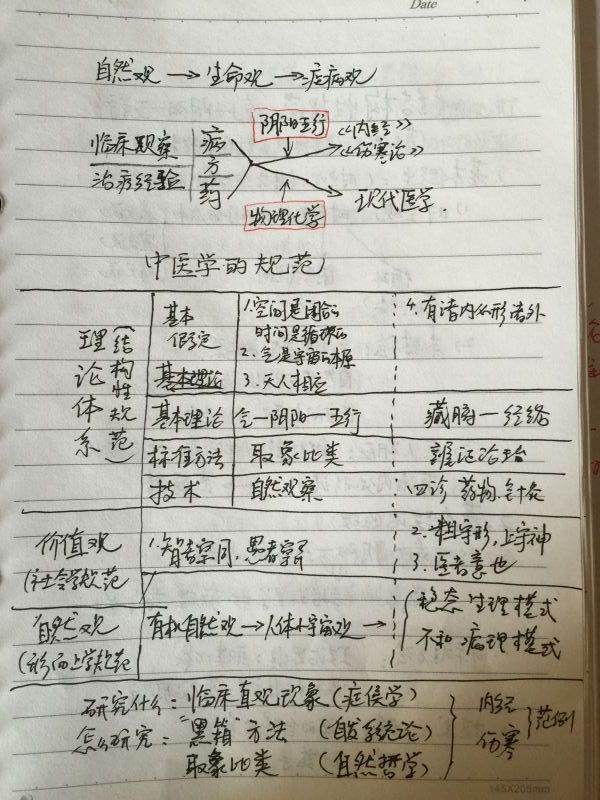 Date
自然观→生命观→症病观
临床观察 病
治疗经验 方
药
阴阳五行
《内经》
《伤寒论》
物理化学
现代医学
中医学的规范
理论体系
(结构性规范)
基本
假定
1.空间是闭合的
时间是循环的
2.气是宇宙的本原
3.天人相应
4.有诸内必形诸外
基本理论
基本理论 气—阴阳—五行 藏腑—经络
标准方法 取象比类 辨证论治
技术 自然观察 四诊 药物、针灸
价值观
(社会学规范
1.智者察同,愚者察异
2.粗守形,上守神
3.医者意也
自然观
(形而上学规范
有机自然观→人体小宇宙观→
稳态 生理模式
不和 病理模式
研究什么:临床直观现象(症候学)
怎么研究:"黑箱"方法(自发系统论)
取象比类(自然哲学)
内经
伤寒
范例
145X205mm